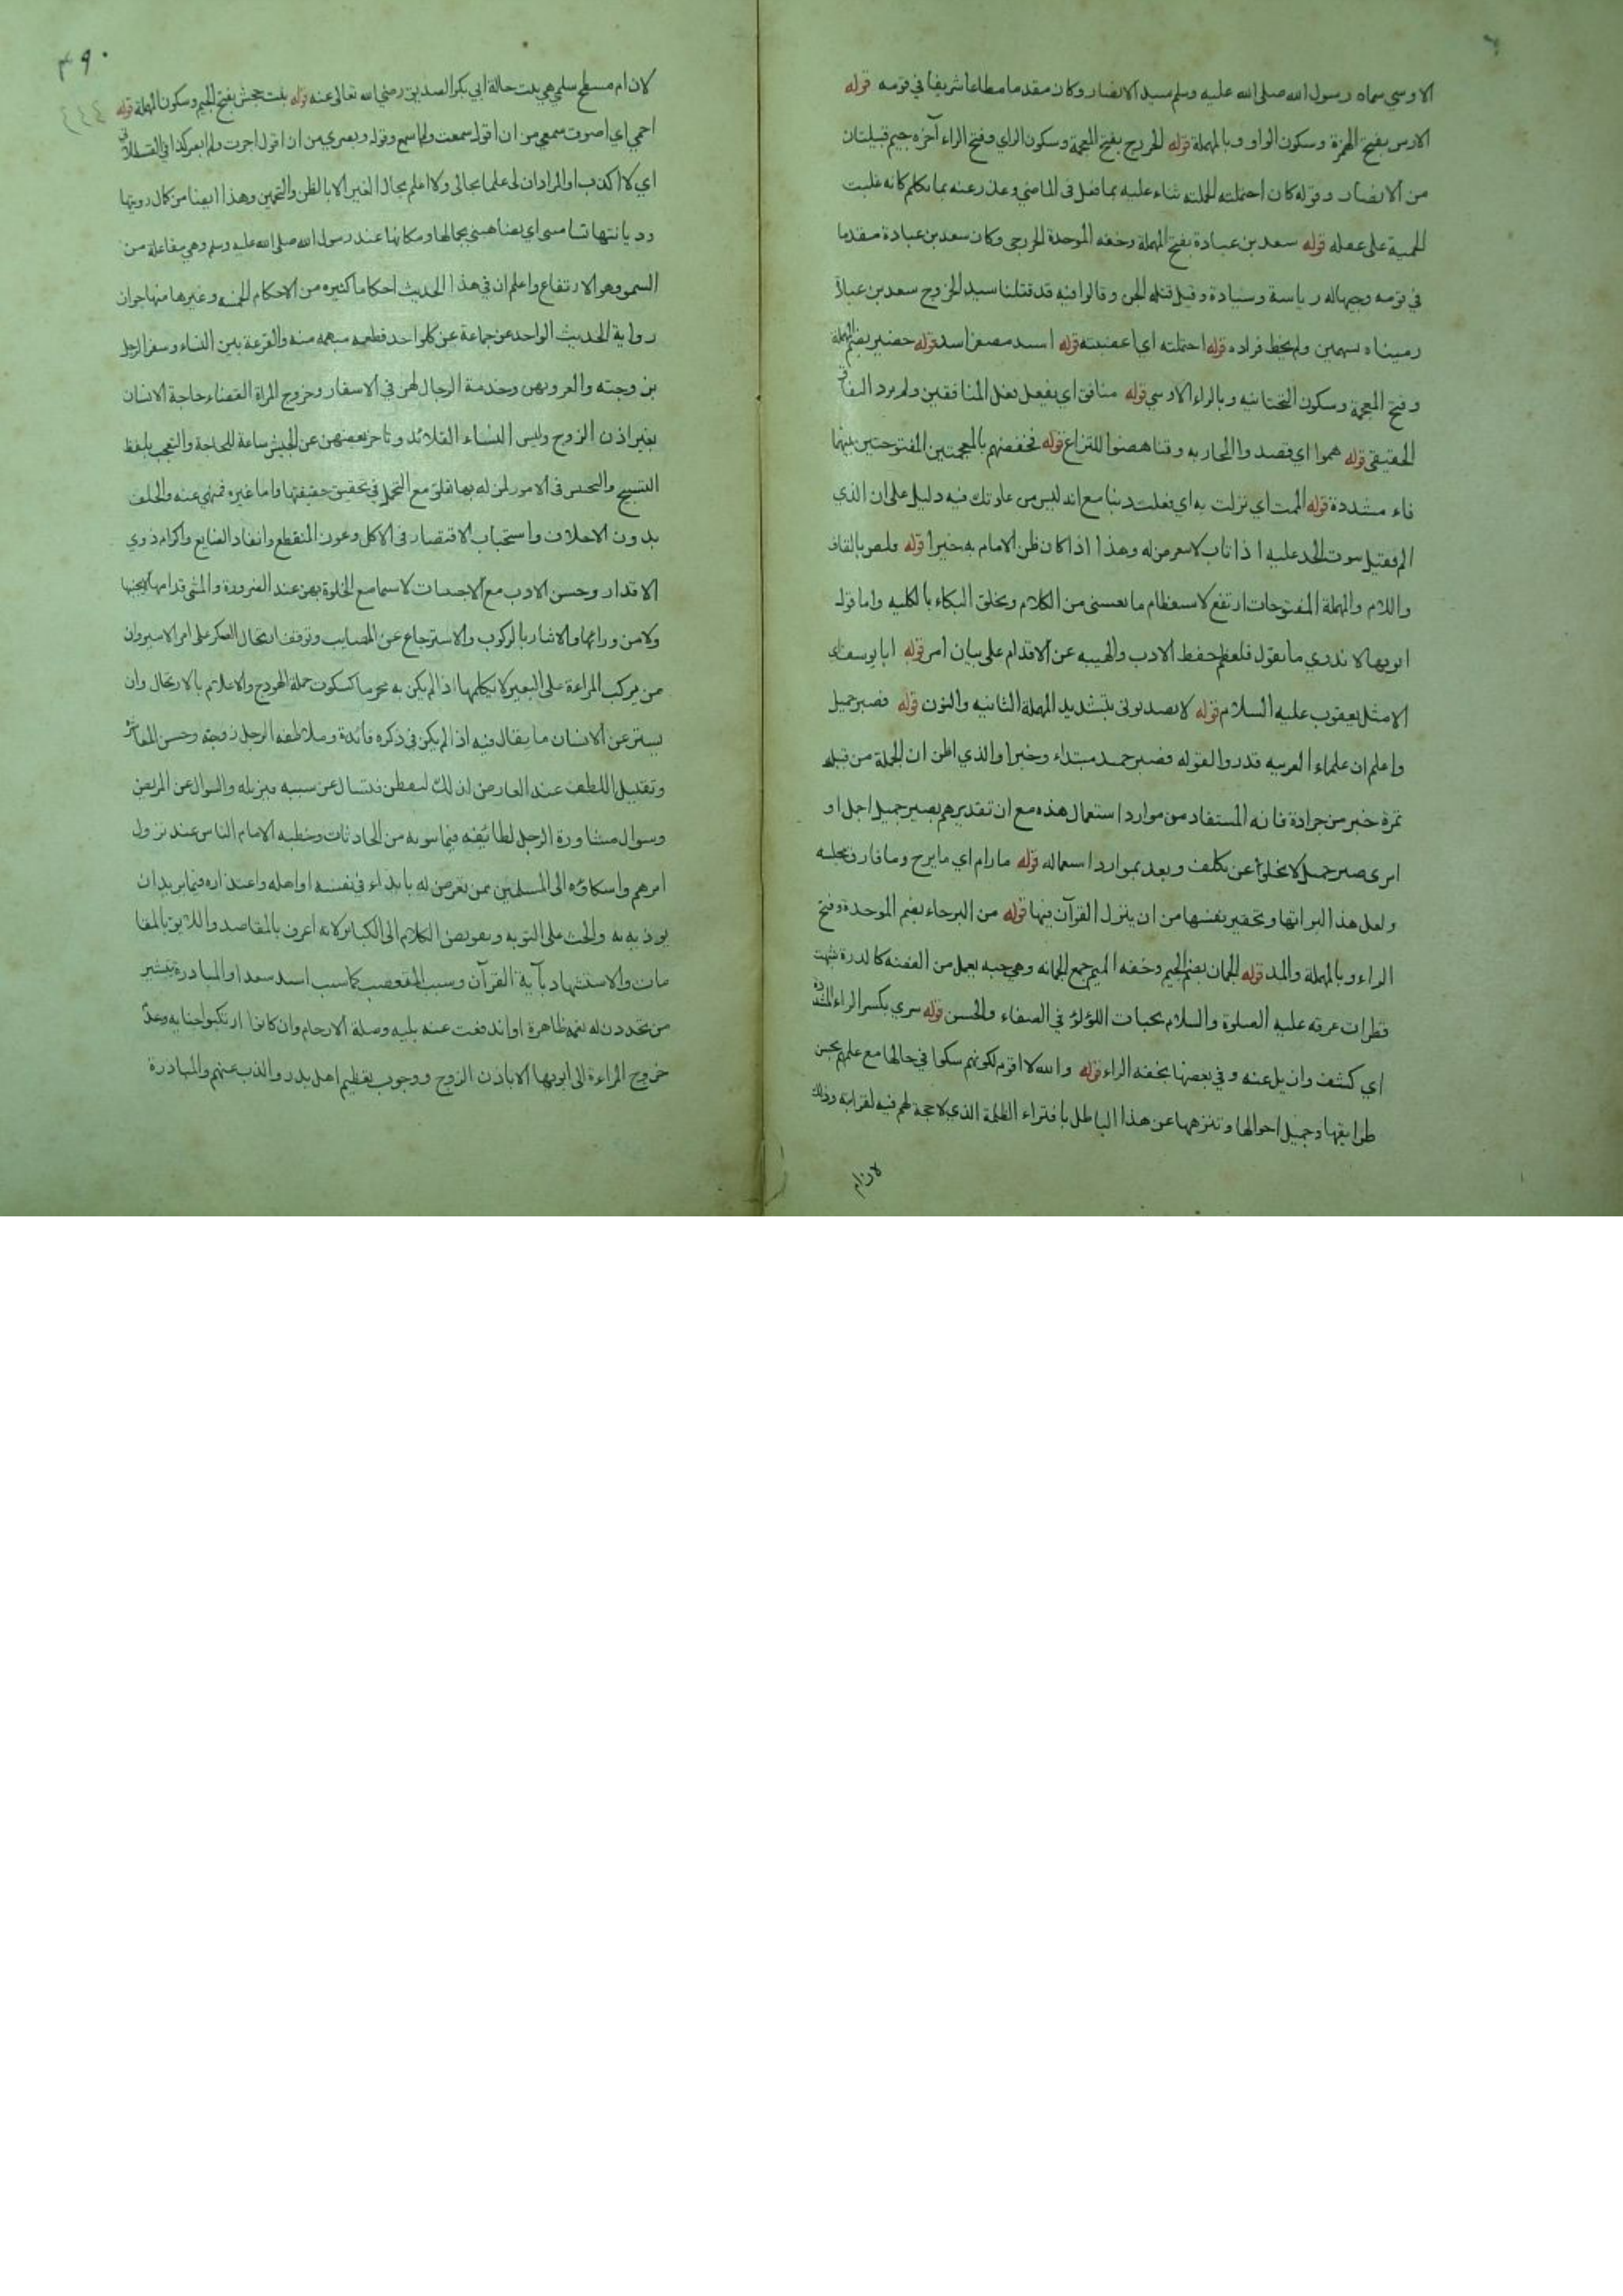 الاوسي سماه رسول الله صلى الله عليه وسلم سيد الانصار وكان مقدما مطاعا شريفا في قومه قوله
الاوس بفتح الهمزة وسكون الواو وبالمهملة قوله الخزرج بفتح المعجمة وسكون الزاي وفتح الراء آخره جيم قبيلتان
من الانصار وقوله كان احتملته الحملته ثناء عليه بما فعل في الماضي وعذر عنه بما تكلم كانه غلبت
الحمية على عقله قوله سعد بن عبادة بفتح المهملة وخفه الموحدة الخزرجي وكان سعد بن عبادة مقدما
في قومه وجيها له رياسة وسيادة وقيل قتله الجن وقالوا فيه قد قتلنا سيد الخزرج سعد بن عبادة
رميناه بسهمين ولم يخط فراده قوله احتملته اي اغضبته قوله اسيد مصغر اسد قوله حضير بضم المهملة
وفتح المعجمة وسكون التحتانيه وبالراء الاوسي قوله منافق اي يفعل فعل المنافقين ولم يرد النفاق
الحقيقي قوله هموا اي قصدوا المحاربه وتناهضوا للنزاع قوله فخفضهم بالمعجمتين المفتوحتين بينهما
فاء مشددة قوله الممت اي نزلت به اي فعلت دنبا مع انه ليس من عادتك فيه دليل على ان الذي
الحد عليه اذا تاب وهذا اذا كان ظن الامام به خيرا قوله قلص بالقاف
واللام والمهملة المفتوحات ارتفع لاستعظام ما من الكلام البكاء بالكليه واما قول
ابويها لا ندري ما نقول فلعله حفظ الادب والهيبه عن الاقدام على بيان امر قوله ابا يوسف اي
الامثل يعقوب عليه السلام قوله لا يصدقوني بتشديد المهملة الثانيه والنون قوله فصبر جميل
واعلم ان علماء العربيه قدروا لقوله فصبر جميل مبتداء وخبرا والذي اظن ان الجملة من قبله
تمرة خير من جرادة فانه المستفاد من موارد استعمال هذه مع ان تقديرهم بصبر جميل اجل او
امري صبر جميل لا يخلو عن تكلف وبعد بموارد استعماله قوله ما رام اي ما برح وما فارق مجلسه
ولعل هذا لبرائها وتحقير نفسها من ان ينزل القرآن فيها قوله من البرحاء بضم الموحدة وفتح
الراء وبالمهملة والمد قوله الجمان بضم الجيم وخفه الميم جمع الجمانه وهي حبه يعمل من الفضه كالدرة شبهت
قطرات عرقه عليه الصلوة والسلام بحبات اللؤلؤ في الصفاء والحسن قوله سري بكسر الراء المشددة
اي كشف وازيل عنه وفي بعضها بخفه الراء قوله والله لا اقوم لكونهم سكوا في حالها مع علمهم بحسن
طرايقها وجميل احوالها وتنزهها عن هذا الباطل بافتراء الظلمة الذي لا حجة لهم فيه لقرابه وذلك
لان ام
٤٩٠
٤٤٤
لان ام مسطح سلمي هي بنت خالة ابي بكر الصديق رضي الله تعالى عنه قوله بنت جحش بفتح الجيم وسكون المهملة قوله
احمي اي اصون سمعي من ان اقول سمعت ولم اسمع وقوله وبصري من ان اقول ابصرت ولم ابصر كذا في القسطلاني
اي لا اكذب او المراد ان لي علما بحالي ولا اعلم بحال الغير الا بالظن والتخمين وهذا ايضا من كمال رويتها
وديانتها تساميني اي يضاهيني بجمالها ومكانها عند رسول الله صلى الله عليه وسلم وهي مفاعلة من
السمو وهو الارتفاع واعلم ان في هذا الحديث احكاما كثيره من الاحكام الخمسه وغيرها منها جواز
رواية الحديث الواحد عن جماعة عن كل واحد قطعه مبهمه منه والقرعة بين النساء وسفر الرجل
بزوجته والغزو بهن وخدمة الرجال لهن في الاسفار وخروج المراة لقضاء حاجة الانسان
بغير اذن الزوج ولبس النساء القلائد وتاخر بعضهن عن الجيش ساعة للحاجة والتعجب بلفظ
التسبيح والتجسس في الامور لمن له بها تعلق مع التحمل في تحقيق حقيقتها واما غيره فمنهي عنه والحلف
بدون الاحلاف واستحباب الاقتصار في الاكل وعون المنقطع وانقاذ الضايع واكرام ذوي
الاقدار وحسن الادب مع الاجنبيات لا سيما مع الخلوة بهن عند الضرورة والمشي قدامها لا بجنبها
ولا من ورائها والايثار بالركوب والاسترجاع عن المصايب وتوقف ارتحال العسكر على امر الامير وان
من يركب المراءة على البعير لا يكلمها اذا لم يكن به محرما كسكوت حملة الهودج والاعلام بالارتحال وان
يستر عن الانسان ما يقال فيه اذا لم يكن في ذكره فائدة وملاطفه الرجل زوجته وحسن المعاشرة
وتقليل اللطف عند العارض ان ذلك لتفطن فتسال عن سببه فيزيله والسوال عن المريض
وسوال مشاورة الرجل لطائفه فيما ينوبه من الحادثات وخطبه الامام الناس عند نزول
امرهم واشكاؤه الى المسلمين ممن تعرض له بايذاء في نفسه او اهله واعتذاره فيما يريد ان
يوذيه به والحث على التوبه وتفويض الكلام الى الكبار لانه اعرف بالمقاصد واللايق بالمقا
مات والاستشهاد بآية القرآن وسب المتعصب كما سب اسيد سعدا والمبادرة بتبشير
من تجددت له نعمة ظاهرة او اندفعت عنه بليه وصلة الارحام وان كانوا ارتكبوا جنايه وعدم
خروج المراءة الى ابويها الا باذن الزوج ووجوب تعظيم اهل بدر والذب عنهم والمبادرة